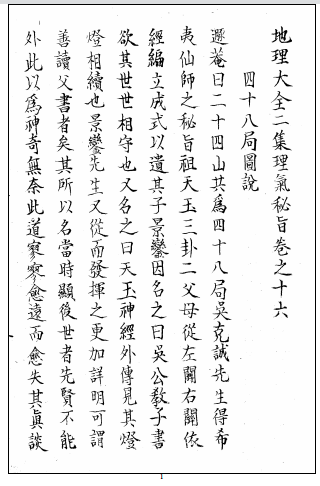 地理大全二集理氣秘旨卷之十六
四十八局圖說
遯菴曰二十四山共為四十八局吳克誠先生得希
夷仙師之秘旨祖天玉三卦二父母從左關右關依
經編立成式以遺其子景鸞因名之曰吳公教子書
欲其世世相守也又名之曰天玉神經外傳見其燈
燈相續也景鸞先生又從而發揮之更加詳明可謂
善讀父書者矣其所以名當時顯後世者先賢不能
外此以爲神奇無奈此道寥寥愈遠而愈失其眞談